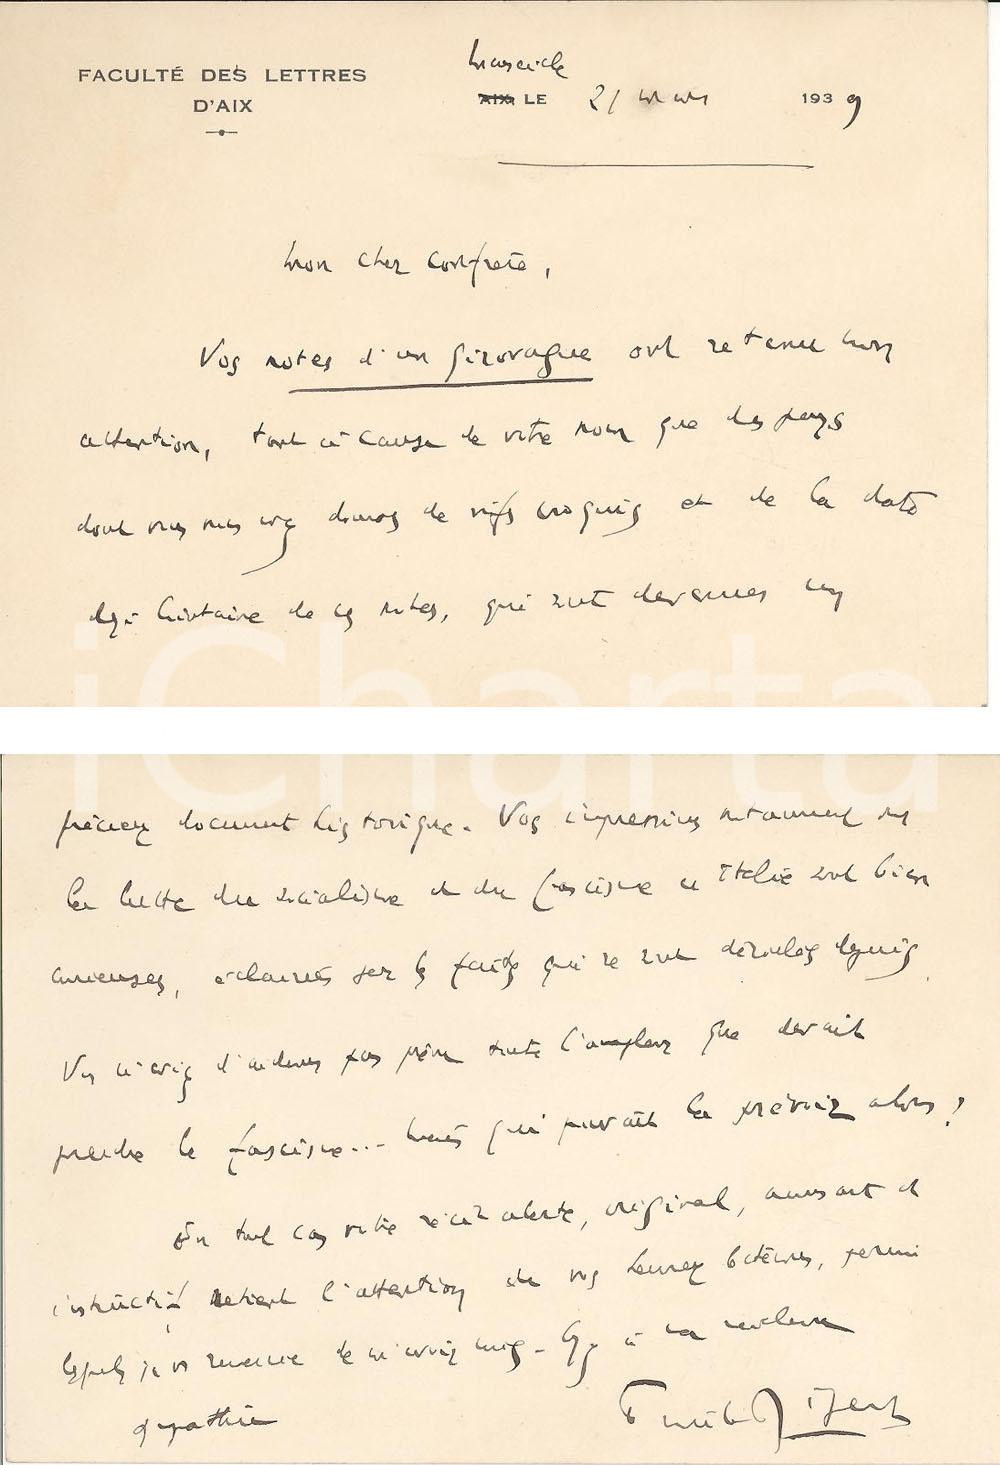 FACULTÉ DES LETTRES
D'AIX
Marseille
AIX, LE 21 mars 1939
Mon cher confrère,
Vos notes d'un girovague ont retenu mon
attention, tant à cause de votre nom que des pays
dont vous nous avez donnés de vifs croquis et de la date
déjà lointaine de ces notes, qui sont devenues un
iCharta
précieux document historique. Vos impressions notamment sur
la lutte du socialisme et du fascisme en Italie sont bien
curieuses, éclairées par les faits qui se sont déroulés depuis.
Vous n'aviez d'ailleurs pas prévu toute l'ampleur que devait
prendre le fascisme... Mais qui pouvait la prévoir alors ?
En tout cas votre récit alerte, original, amusant et
instructif retient l'attention de vos heureux lecteurs, parmi
lesquels je vs remercie de m'avoir mis. Croyez à ma meilleure
sympathie
Emile Ripert